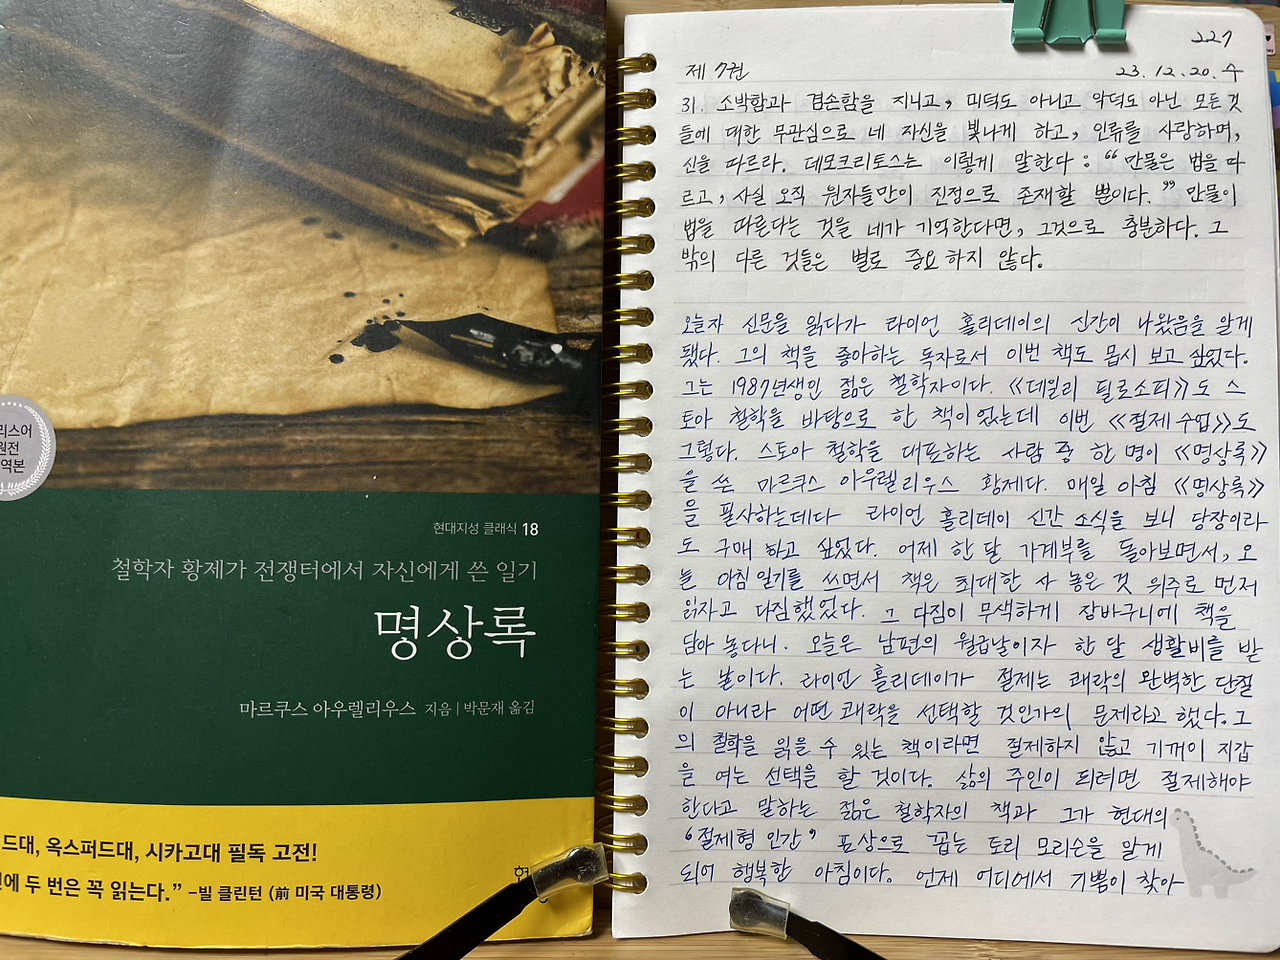 리스어
원전
역본
현대지성 클래식 18
철학자 황제가 전쟁터에서 자신에게 쓴 일기
명상록
마르쿠스 아우렐리우스 지음 | 박문재 옮김
드대, 옥스퍼드대, 시카고대 필독 고전!
에 두 번은 꼭 읽는다.” –빌 클린턴 (前 미국 대통령)
현
227
제 7권 23. 12. 20. 수
31. 소박함과 겸손함을 지니고, 미덕도 아니고 악덕도 아닌 모든 것
들에 대한 무관심으로 네 자신을 빛나게 하고, 인류를 사랑하며,
신을 따르라. 데모크리토스는 이렇게 말한다 : “만물은 법을 따
르고, 사실 오직 원자들만이 진정으로 존재할 뿐이다.” 만물이
법을 따른다는 것을 네가 기억한다면, 그것으로 충분하다. 그
밖의 다른 것들은 별로 중요하지 않다.
오늘자 신문을 읽다가 라이언 홀리데이의 신간이 나왔음을 알게
됐다. 그의 책을 좋아하는 독자로서 이번 책도 몹시 보고 싶었다.
그는 1987년생인 젊은 철학자이다. 《데일리 필로소피》도 스
토아 철학을 바탕으로 한 책이었는데 이번 《절제 수업》도
그렇다. 스토아 철학을 대표하는 사람 중 한 명이 《명상록》
을 쓴 마르쿠스 아우렐리우스 황제다. 매일 아침 《명상록》
을 필사하는데다 라이언 홀리데이 신간 소식을 보니 당장이라
도 구매 하고 싶었다. 어제 한 달 가계부를 돌아보면서, 오
늘 아침 일기를 쓰면서 책은 최대한 사 놓은 것 위주로 먼저
읽자고 다짐했었다. 그 다짐이 무색하게 장바구니에 책을
담아 놓다니. 오늘은 남편의 월급날이자 한 달 생활비를 받
는 날이다. 라이언 홀리데이가 절제는 쾌락의 완벽한 단절
이 아니라 어떤 쾌락을 선택할 것인가의 문제라고 했다. 그
의 철학을 읽을 수 있는 책이라면 절제하지 않고 기꺼이 지갑
을 여는 선택을 할 것이다. 삶의 주인이 되려면 절제해야
한다고 말하는 젊은 철학자의 책과 그가 현대의
‘절제형 인간’ 표상으로 꼽는 토리 모리슨을 알게
되어 행복한 아침이다. 언제 어디에서 기쁨이 찾아